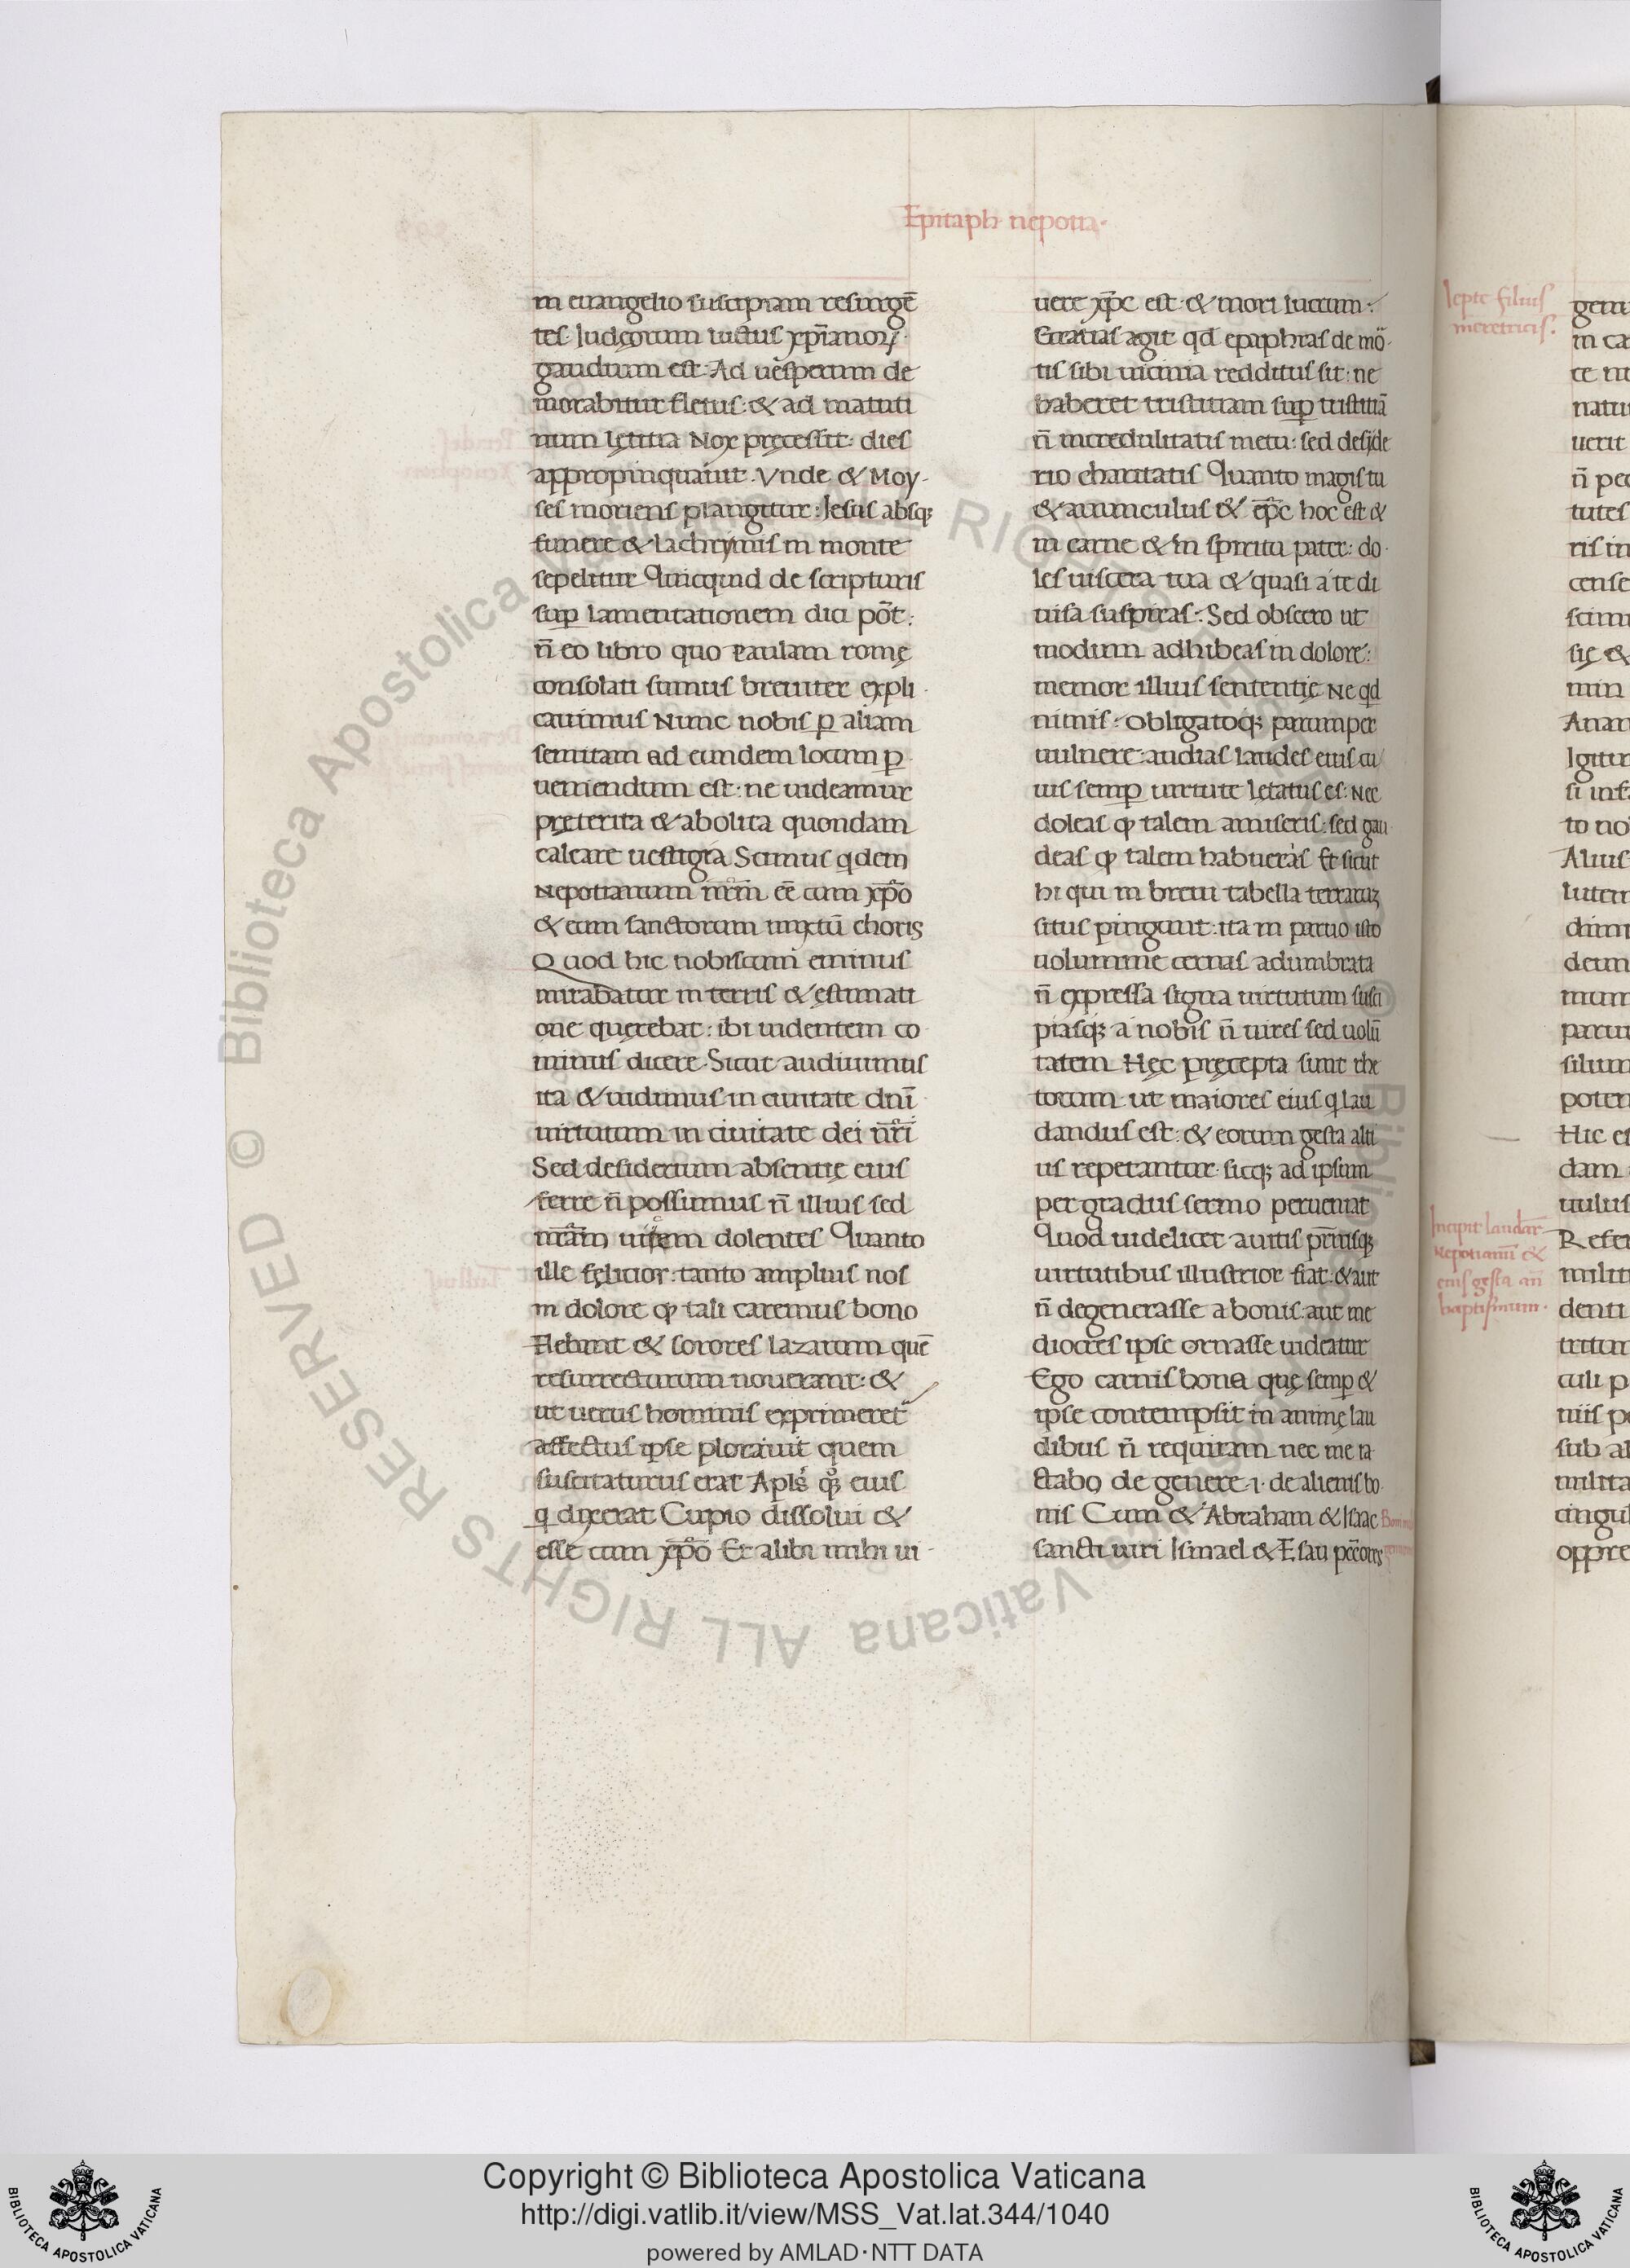 Epitaph nepotia.
in euangelio suscipiam resurgē
tes. Iudęorum luctus xp̄ianoꝝ
gaudium est. Ad uesperum de
morabitur fletus: & ad matuti
num lętitia Nox pręcessit: dies
appropinquauit. Vnde & Moy-
ses moriens plangitur: Iesus absq;
funere & lachrymis in monte
sepelitur Quicquid de scripturis
suꝑ lamentationem dici pōt:
n̄ eo libro quo Paulam romę
consolati sumus breuiter expli
cauimus Nunc nobis ꝑ aliam
semitam ad eundem locum ꝑ
ueniendum est: ne uideamur
pręterita & abolita quondam
calcare uestigia Scimus qdem
Nepotianum nr̄m eē cum xp̄o
& eum sanctorum mixtū choris
Quod hic nobiscum eminus
mirabatur in terris & ęstimati
one quęrebat: ibi uidentem co
minus dicere. Sicut audiuimus
ita & uidimus in ciuitate dn̄i
uirtutum in ciuitate dei nr̄i
Sed desiderium absentię eius
ferre n̄ possumus n̄ illius sed
nr̄am uicem dolentes Quanto
ille fęlicior: tanto amplius nos
in dolore ꝙ tali caremus bono
Flebant & sorores Lazarum quē
resurrecturum nouerant: &
ut ueros hominis exprimeret
affectus ipse plorauit quem
suscitaturus erat Apl's q;ͦ eius
q dixerat Cupio dissolui &
esse cum xp̄o Et alibi mihi ui-
uere xp̄c est & mori lucrum:
Gratias agit qd epaphras de mor
tis sibi uicinia redditus sit: ne
haberet tristitiam suꝑ tristitiā
n̄ incredulitatis metu: sed deside
rio charitatis Quanto magis tu
& auunculus & ep̄c hoc est &
in carne & in spiritu pater: do
les uiscera tua & quasi a te di
uisa suspiras: Sed obsecro ut
modum adhibeas in dolore:
memor illius sententię Ne qd
nimis: Obligatoq; parumper
uulnere: audias laudes eius cu
ius semꝑ uirtute lętatus es: Nec
doleas ꝙ talem amiseris: sed gau
deas ꝙ talem habueras Et sicut
hi qui in breui tabella terraruꝫ
situs pingunt: ita in paruo isto
uolumine cernas adumbrata
n̄ expressa signa uirtutum susci
piasq; a nobis n̄ uires sed uolū
tatem Hęc pręcepta sunt rhe
torum: ut maiores eius q lau
dandus est: & eorum gesta alti
us repetantur sicq; ad ipsum
per gradus sermo perueniat
Quod uidelicet auitis pr̄nisq;
uirtutibus illustrior fiat: & aut
n̄ degenerasse a bonis: aut me
diocres ipse ornasse uideatur
Ego carnis bona quę semꝑ &
ipse contempsit in animę lau
dibus n̄ requiram nec me ia
ctabo de genere .i. de alienis bo
nis Cum & Abraham & Isaac
sancti uiri Ismael & Esau pccōres
Iepte filius
meretricis.
Incipit laudar̄
Nepotianū &
eius gesta an̄
baptismum.
Copyright © Biblioteca Apostolica Vaticana
http://digi.vatlib.it/view/MSS_Vat.lat.344/1040
powered by AMLAD·NTT DATA